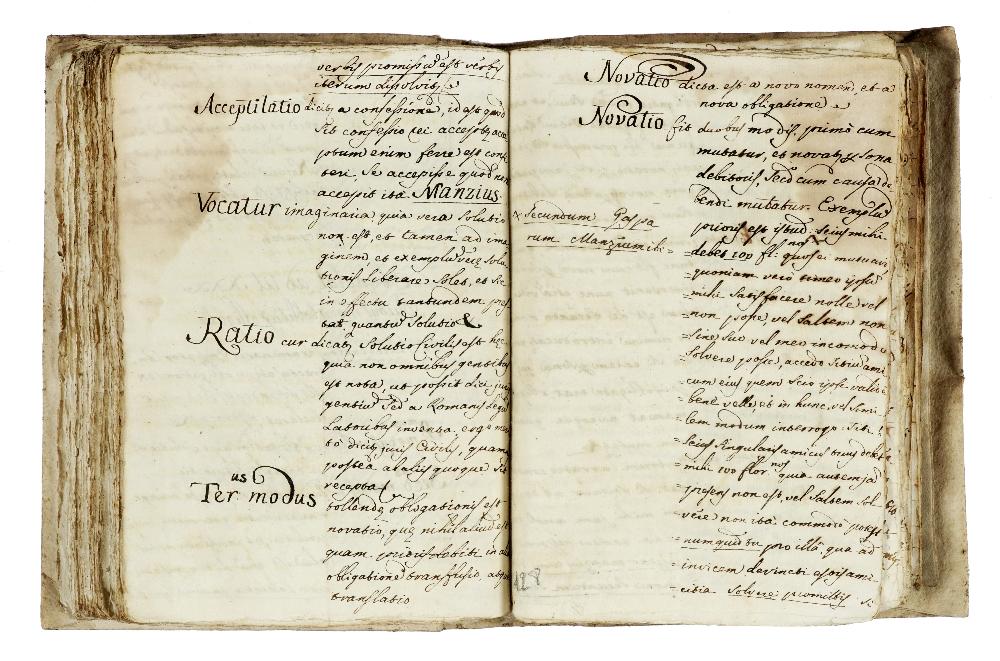 verbis promissū est verbis
iterum dissolvitꝭ
Acceptilatio dicitꝭ a confessione, id est quod
sit confessio rei acceptæ, acce
ptum enim ferre est confi
teri, se accepisse quod non
accepit ita Manzius.
Vocatur imaginaria quia vera solutio
non est, et tamen ad ima
ginem et exemplū veræ solu
tionis liberare solet, et sic
in effectu tantundem præs
tat quantū solutio
Ratio cur dicatꝭ solutio Civilis est hæc
quia non omnibus gentibus
est nota, ut possit dici juris
gentiū sed a Romanis legis
latoribus inventa ergo meri
to dicitꝭ juris Civilis, quamvis
postea ab aliis quoque sit
recepta
Ter us modus
tollendę obligationis est
novatio, quę nihil aliud est
quam prioris debiti in aliā
obligationē transfusio, atque
translatio
128
Novatio dicta est a novo nomen, et a
nova obligatione
Novatio fit duobus modis, primo cum
mutatur, et novatꝭ persona
debitoris, secdo cum causa de
bendi mutatur. Exemplū
Secundum Gaspa
rum Manzium ibi =
prioris est istud: Seius mihi
=debet 100 fl: quos ei mutuavi
=quoniam vero timeo ipsū
=mihi satisfacere nolle vel
=non posse, vel saltem non
=sine suo vel meo incomodo
=solvere posse, accedo Titiū ami
=cum eius quem scio ipsi valde
=bene velle, et in hunc vel simi
=lem modum interrogo: Titi!
=Seius singularis amicus tuus debet
=mihi 100 flor nos quia autem jā
=presens non est, vel saltem sol
=vere non ita commode potest
=numquid tu pro illo, qua ad
=invicem devincti estis ami
=citia solvere promittis. si